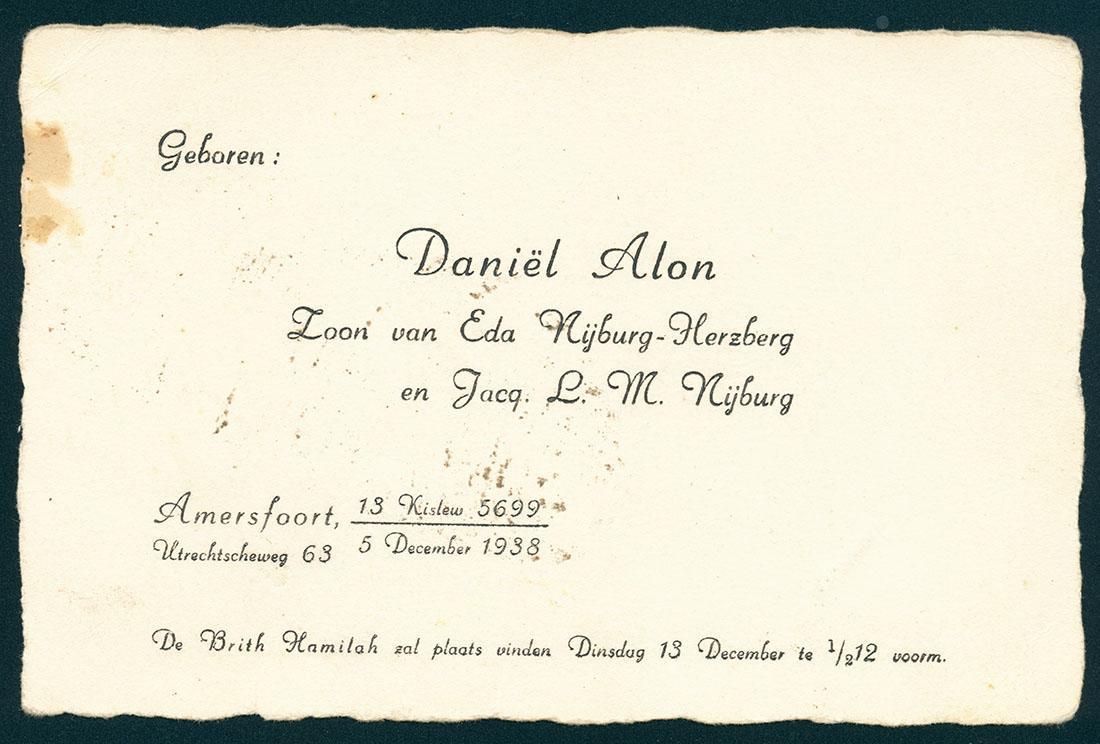 Geboren:
Daniël Alon
Zoon van Eda Nijburg-Herzberg
en Jacq. L. M. Nijburg
Amersfoort, 13 Kislew 5699
Utrechtscheweg 63 5 December 1938
De Brith Hamilah zal plaats vinden Dinsdag 13 December te ½12 voorm.